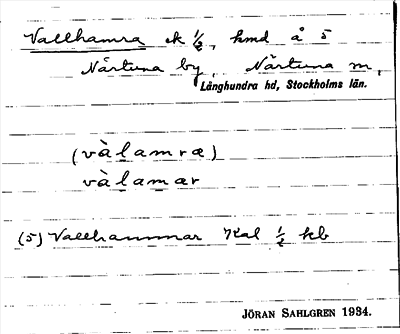 Vallhamra ek ½, hmd å 5
Närtuna by, Närtuna sn,
Långhundra hd, Stockholms län.
(vàlamræ)
vàlamær
(5) Vallhammar Kal ½ hb
JÖRAN SAHLGREN 1934.